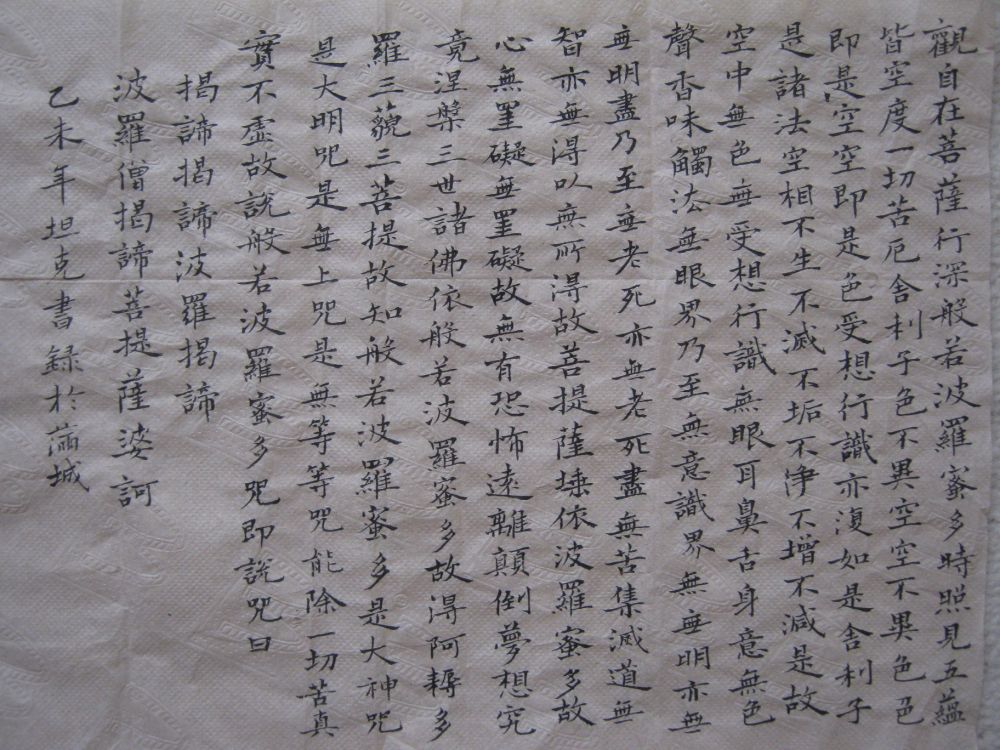 觀自在菩薩行深般若波羅蜜多時照見五蘊
皆空度一切苦厄舍利子色不異空空不異色色
即是空空即是色受想行識亦復如是舍利子
是諸法空相不生不滅不垢不淨不增不減是故
空中無色無受想行識無眼耳鼻舌身意無色
聲香味觸法無眼界乃至無意識界無無明亦無
無明盡乃至無老死亦無老死盡無苦集滅道無
智亦無得以無所得故菩提薩埵依波羅蜜多故
心無罣礙無罣礙故無有恐怖遠離顛倒夢想究
竟涅槃三世諸佛依般若波羅蜜多故得阿耨多
羅三藐三菩提故知般若波羅蜜多是大神咒
是大明咒是無上咒是無等等咒能除一切苦真
實不虛故說般若波羅蜜多咒即說咒曰
揭諦揭諦波羅揭諦
波羅僧揭諦菩提薩婆訶
乙未年坦克書錄於城